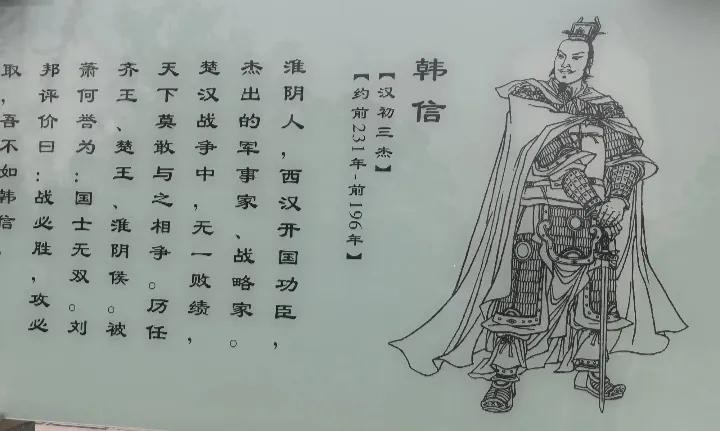 韩信
【汉初三杰】
【约前231年-前196年】
淮阴人，西汉开国功臣，
杰出的军事家、战略家。
楚汉战争中，无一败绩，
天下莫敢与之相争。历任
齐王、楚王、淮阴侯。被
萧何誉为：国士无双。刘
邦评价曰：战必胜，攻必
取，吾不如韩信。